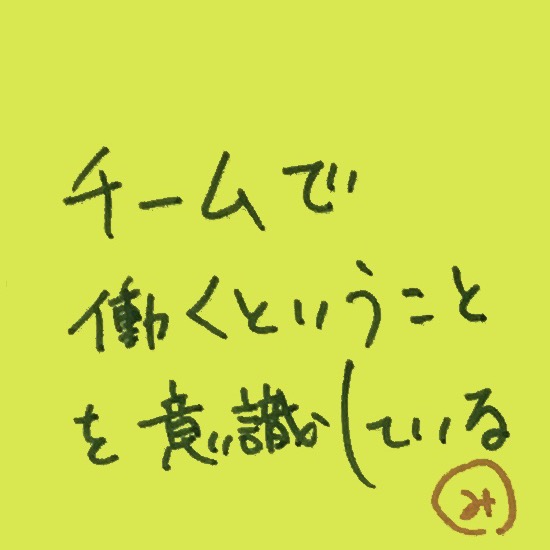 チームで
働くということ
を意識している
み